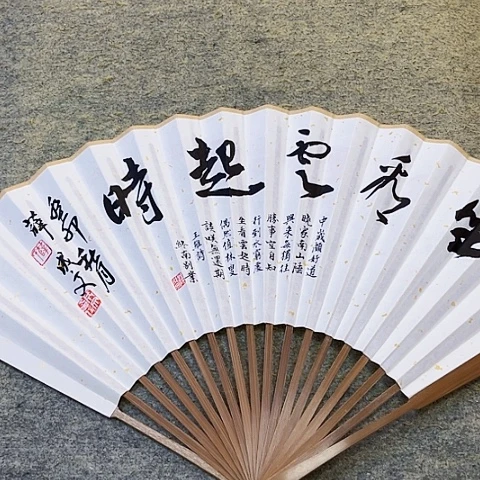 坐看雲起時
中歲頗好道
晚家南山陲
興來每獨往
勝事空自知
行到水窮處
坐看雲起時
偶然值林叟
談咲無還期
王維詩
終南別業
癸卯